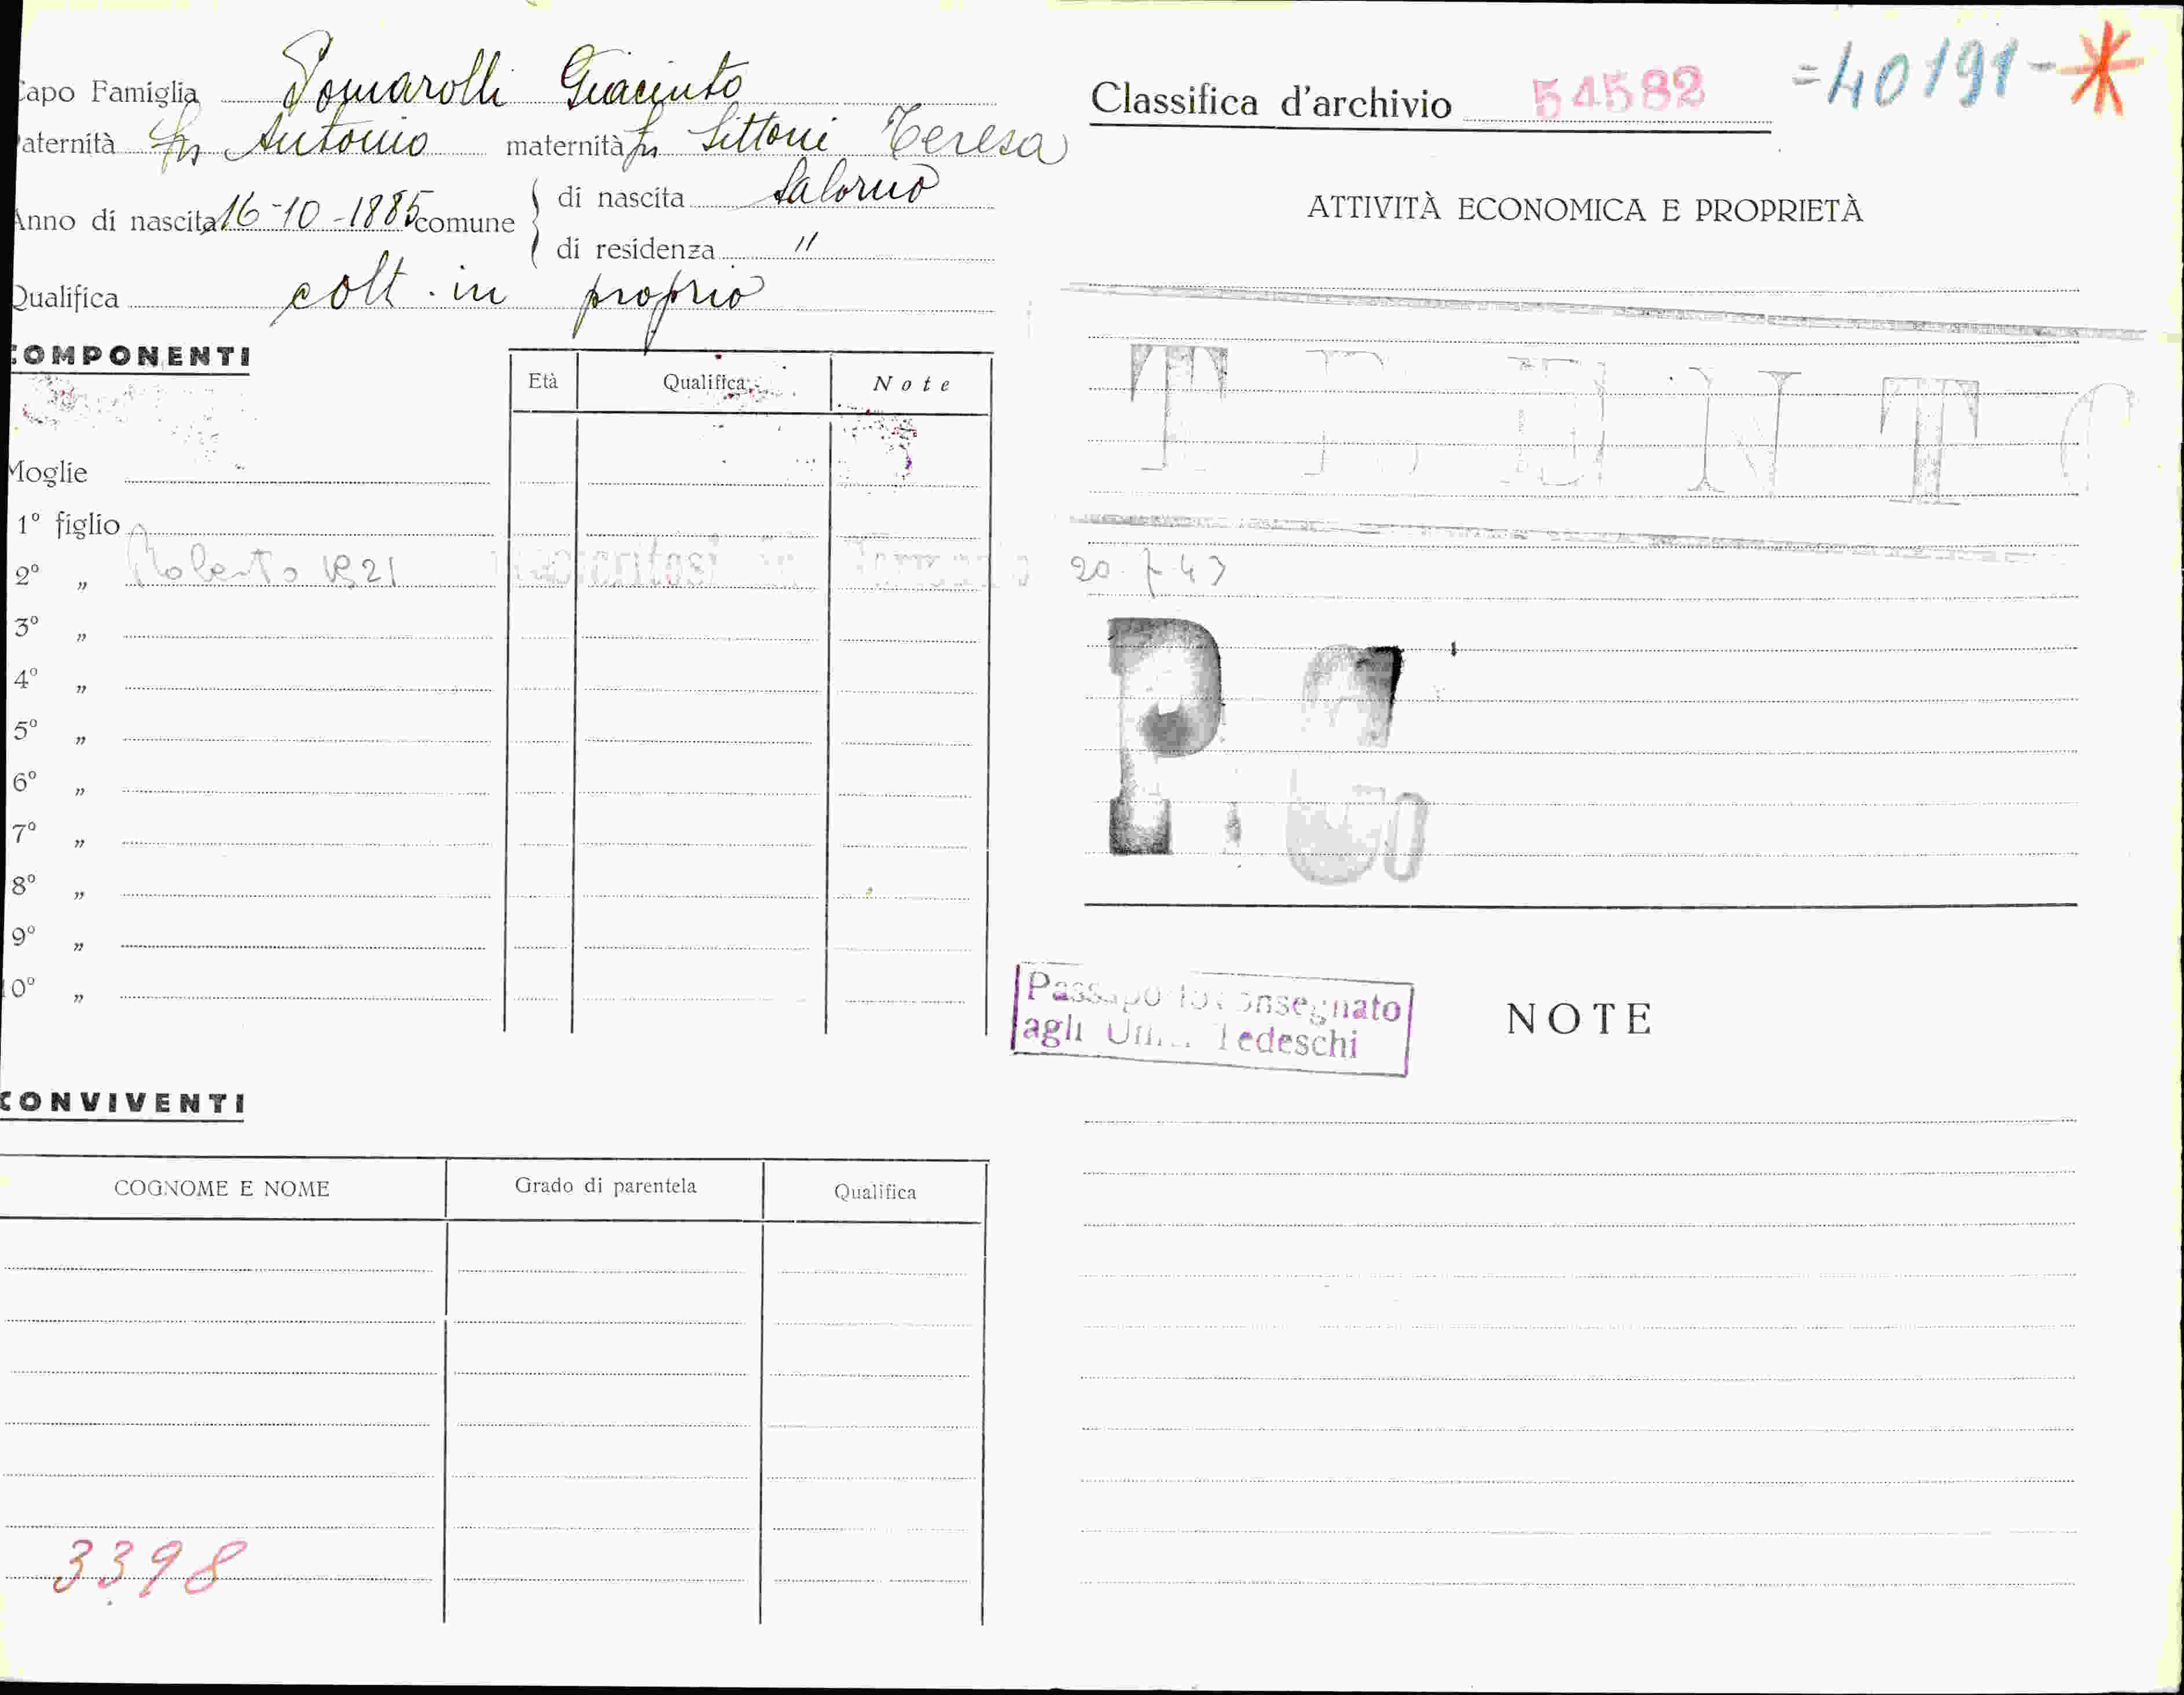 Capo Famiglia Pomarolli Giacinto
Paternità fu Antonio maternità fu Sittoni Teresa
Anno di nascita 16-10-1885 comune di nascita Salorno
di residenza "
Qualifica colt. in proprio
COMPONENTI
Età Qualifica Note
Moglie
1° figlio
2° „ Roberto 1921 20-7-43
3° „
4° „
5° „
6° „
7° „
8° „
9° „
10° „
CONVIVENTI
COGNOME E NOME Grado di parentela Qualifica
3398
Classifica d'archivio 54582 =40191-*
ATTIVITÀ ECONOMICA E PROPRIETÀ
Passaporto consegnato
agli Uffici Tedeschi
NOTE